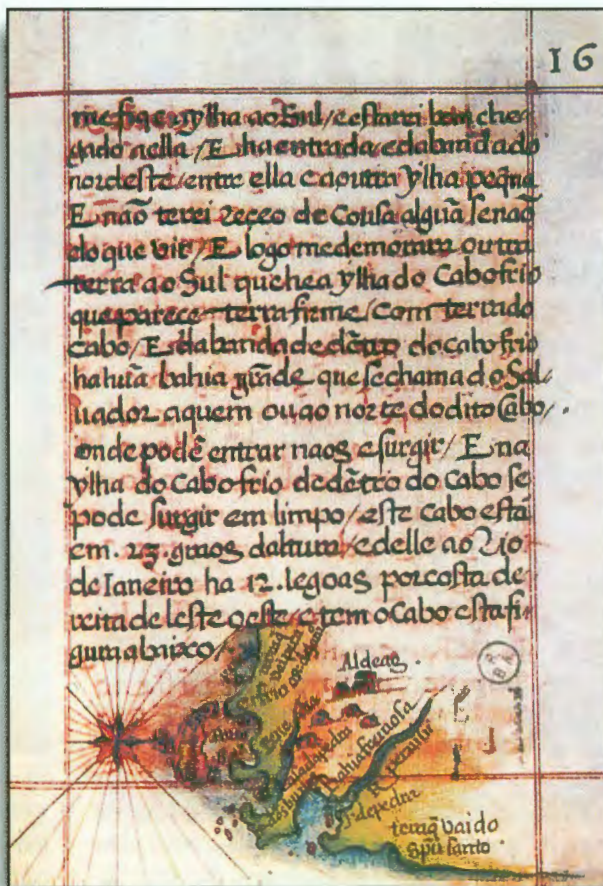 16
me fiqe a ylha ao Sul / e estarei bem che-
gado nella / E ha entrada e da banda do
nordeste / entre ella e a outra ylha peqña
E não terei receo de Cousa algũa senão
do que vir / E logo me demorara outra
terra ao Sul que he a ylha do Cabo frio
que parece terra firme / com terra do
cabo / E da banda de dẽtro do cabo frio
ha hũa bahia grãde que se chama do Sal-
uador aquem ou ao norte do dito Cabo / .
onde podẽ entrar naos e surgir / E na
ylha do Cabo frio de dẽtro do Cabo se
pode surgir em limpo / este Cabo está
em . 23 . graos daltura / e delle ao Rio
de Ianeiro ha 12 . legoas por costa de-
reita de leste oeste / e tem o Cabo esta fi-
gura abaixo /
Aldeas
Bahia fermosa
terra q̃ vai do
Spũ santo